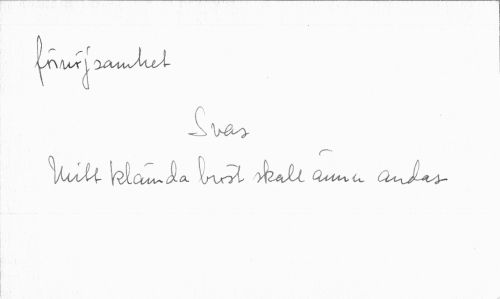 förnöjsamhet
Svas
Mitt klämda bröst skall ännu andas